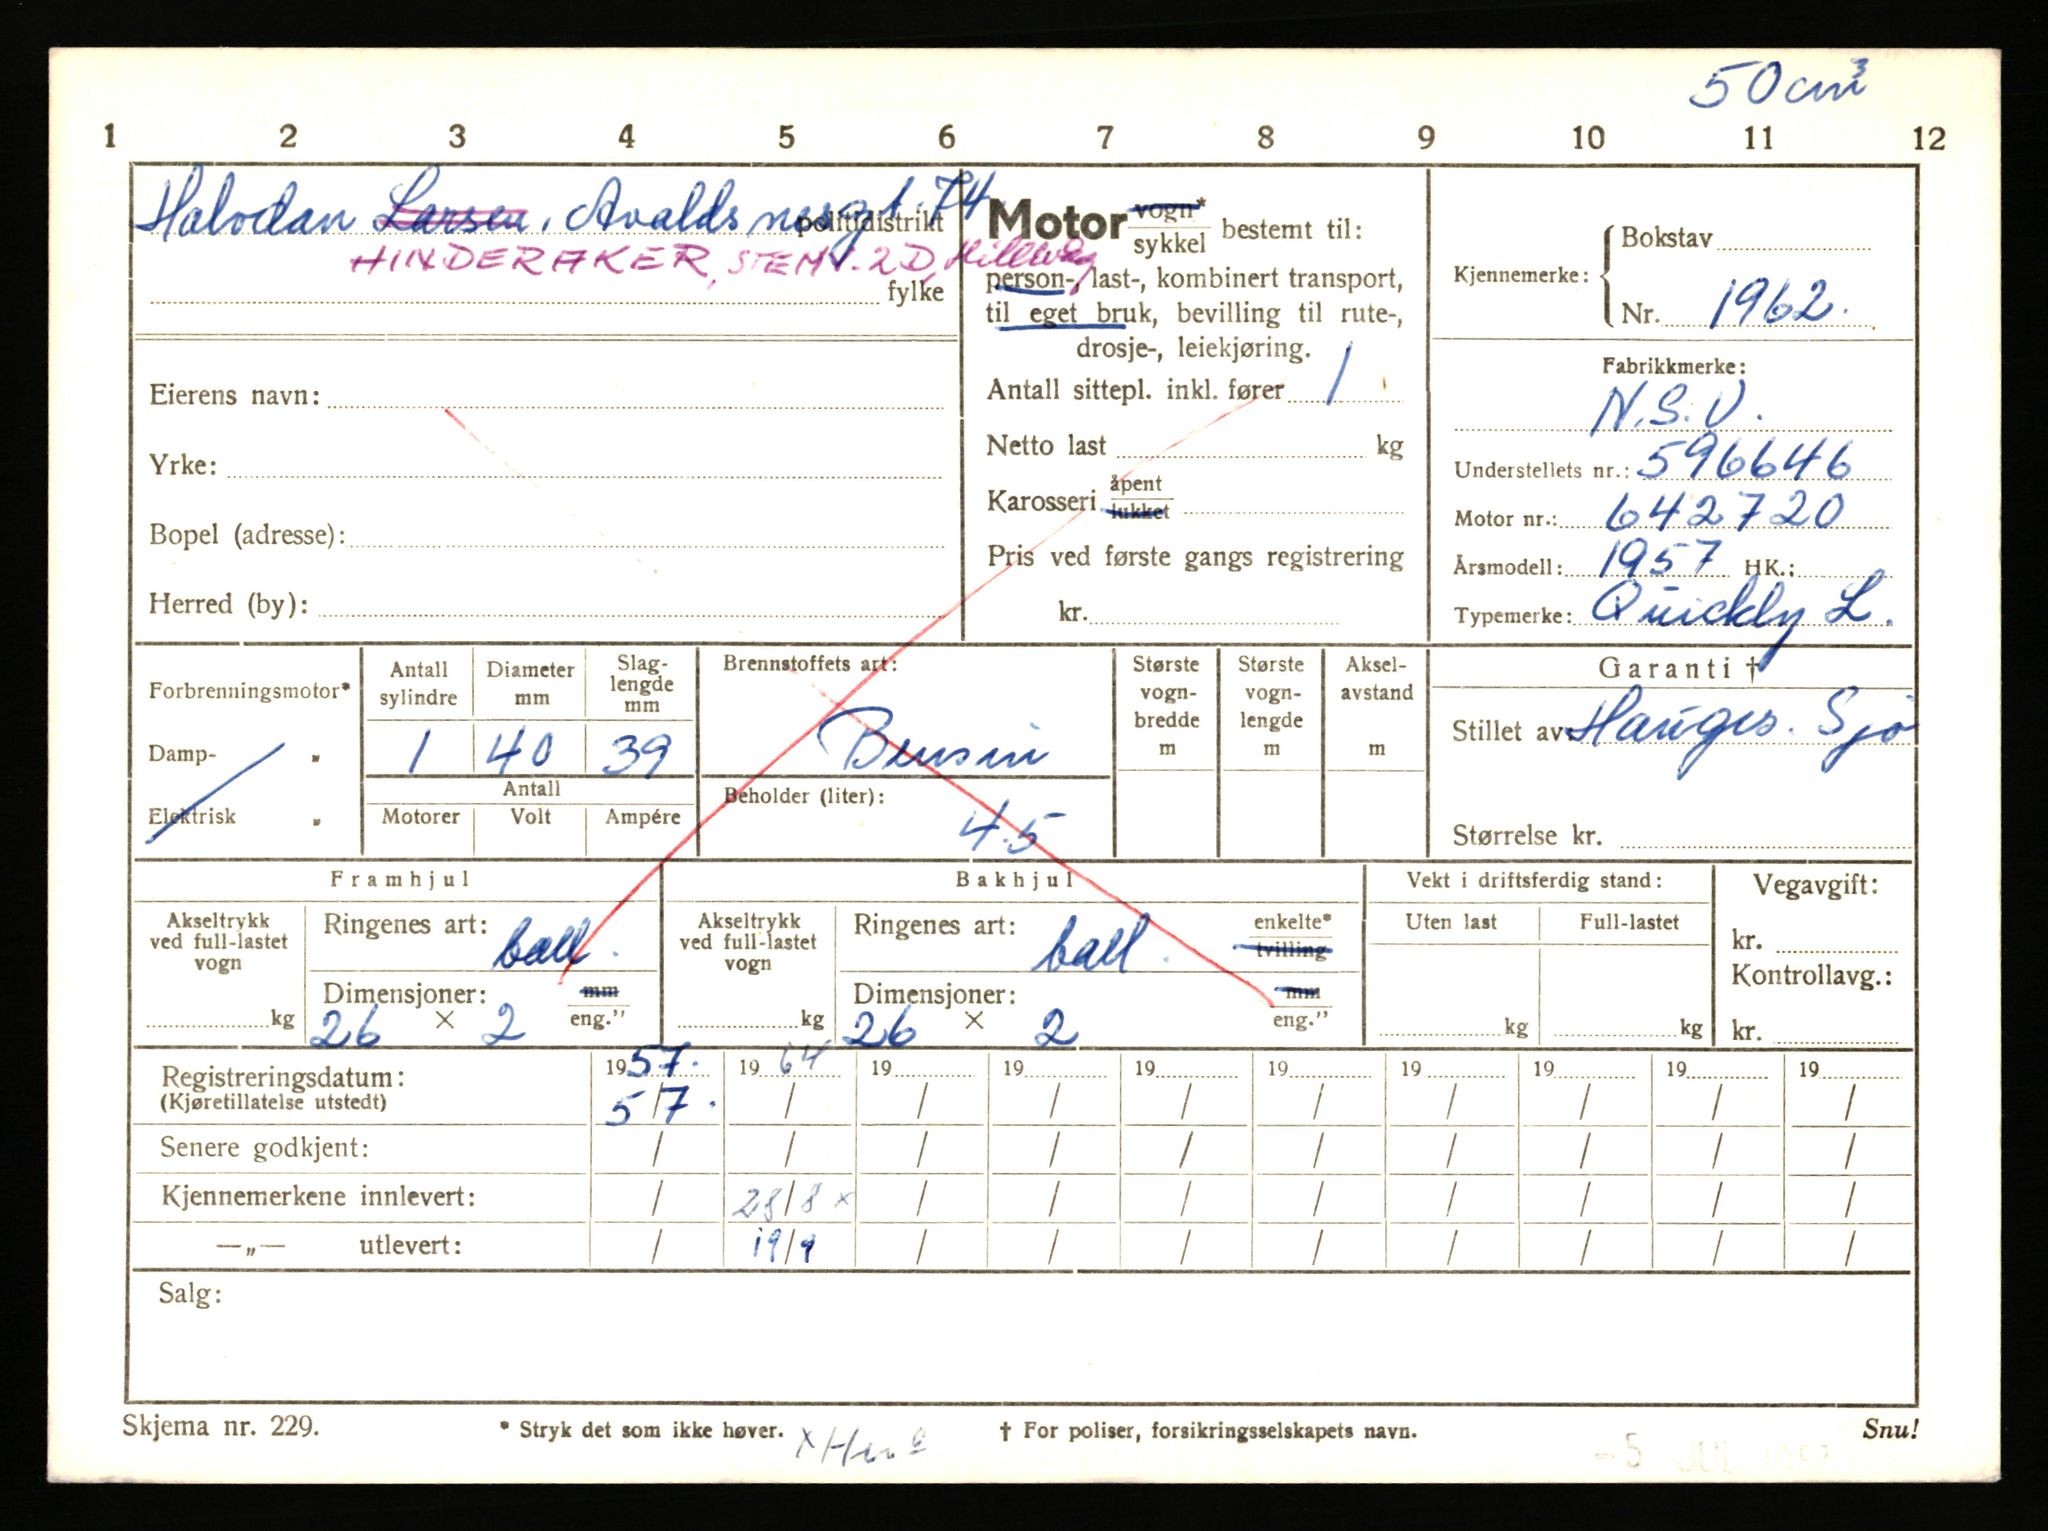 50 cm³
1 2 3 4 5 6 7 8 9 10 11 12
Halvdan Larsen, Avaldsnesgt. 74
politidistrikt
HINDERAKER, STEMV. 2D, Hillevåg
fylke
Eierens navn:
Yrke:
Bopel (adresse):
Herred (by):
Motor vogn* sykkel bestemt til:
person-, last-, kombinert transport,
til eget bruk, bevilling til rute-,
drosje-, leiekjøring.
Antall sittepl. inkl. fører 1
Netto last kg
Karosseri åpent lukket
Pris ved første gangs registrering
kr.
Kjennemerke: Bokstav
Nr. 1962.
Fabrikkmerke:
N.S.U.
Understellets nr.: 596646
Motor nr.: 642720
Årsmodell: 1957 HK.:
Typemerke: Quickly L.
Forbrenningsmotor*
Damp- „
Elektrisk „
Antall sylindre
1
Diameter mm
40
Slag-
lengde
mm
39
Antall
Motorer Volt Ampére
Brennstoffets art:
Bensin
Beholder (liter):
4.5
Største
vogn-
bredde
m
Største
vogn-
lengde
m
Aksel-
avstand
m
Garanti †
Stillet av Hauges. Sjø
Størrelse kr.
Framhjul
Akseltrykk
ved full-lastet
vogn
kg
Ringenes art: ball.
Dimensjoner: mm
26 × 2 eng."
Bakhjul
Akseltrykk
ved full-lastet
vogn
kg
Ringenes art: ball. enkelte* tvilling
Dimensjoner: mm
26 × 2 eng."
Vekt i driftsferdig stand:
Uten last Full-lastet
kg kg
Vegavgift:
kr.
Kontrollavg.:
kr.
Registreringsdatum: 1957. 1964 19 19 19 19 19 19 19 19
(Kjøretillatelse utstedt) 5/7. / / / / / / / / /
Senere godkjent: / / / / / / / / / /
Kjennemerkene innlevert: / 28/8 x / / / / / / / /
—„— utlevert: / 19/9 / / / / / / / /
Salg:
Skjema nr. 229. * Stryk det som ikke høver. † For poliser, forsikringsselskapets navn. Snu!
-5 JUL 1957